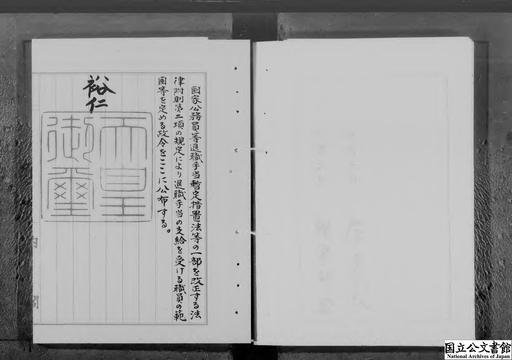 国家公務員等退職手当暫定措置法等の一部を改正する法
律附則第二項の規定により退職手当の支給を受ける職員の範
囲等を定める政令をここに公布する。
裕仁
天皇
御璽
国立公文書館
National Archives of Japan